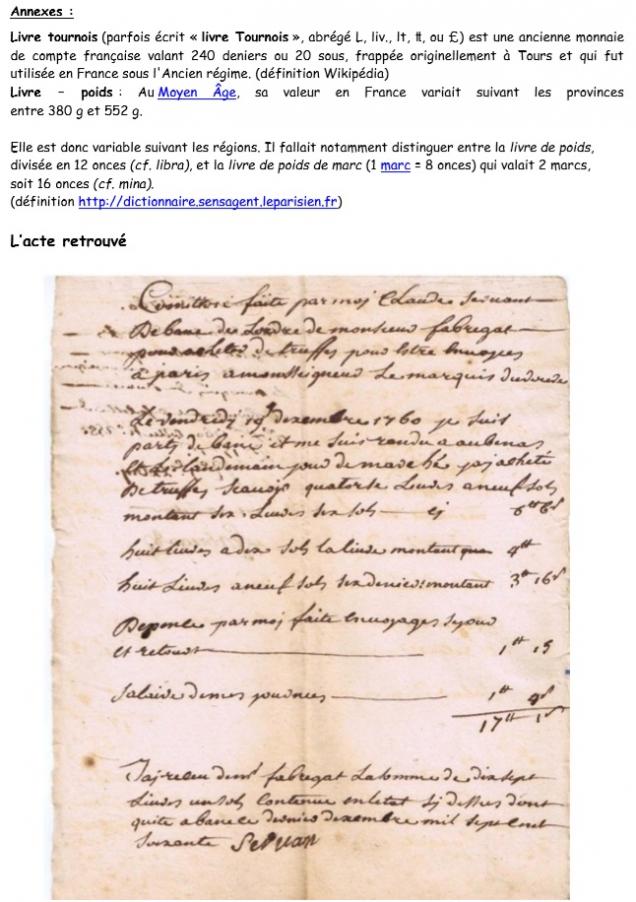 Annexes :
Livre tournois (parfois écrit « livre Tournois », abrégé L, liv., lt, ₶, ou £) est une ancienne monnaie
de compte française valant 240 deniers ou 20 sous, frappée originellement à Tours et qui fut
utilisée en France sous l'Ancien régime. (définition Wikipédia)
Livre – poids : Au Moyen Âge, sa valeur en France variait suivant les provinces
entre 380 g et 552 g.
Elle est donc variable suivant les régions. Il fallait notamment distinguer entre la livre de poids,
divisée en 12 onces (cf. libra), et la livre de poids de marc (1 marc = 8 onces) qui valait 2 marcs,
soit 16 onces (cf. mina).
(définition http://dictionnaire.sensagent.leparisien.fr)
L'acte retrouvé
faite par moj Claude Servant
De bane de Lordre de monsieur fabregat
pour acheter de truffes pour Estre Envoyés
a paris a monseigneur Le marquis
Le vendredj 19 dexembre 1760 je suis
party de bane et me suis rendu a aubenas
Et Le landemain jour de marché jaj acheté
De truffes scavoir quatorse Livres a neuf sols
montant six Livres six sols cj 6₶ 6s
huit Livres a dix sols la livre montant 4₶
huit Livres a neuf sols six deniers montant 3₶ 16s
Depence par moj faite En voyages sejour
Et retour 1₶ 15
salaire de mes journées 1₶ 4s
17₶ 1s
Jaj receu de mr fabregat La somme de dix sept
Livres un sol Contenue en letat cj dessus dont
quite a bane Le dernier dexembre mil sept cent
soixante Servan